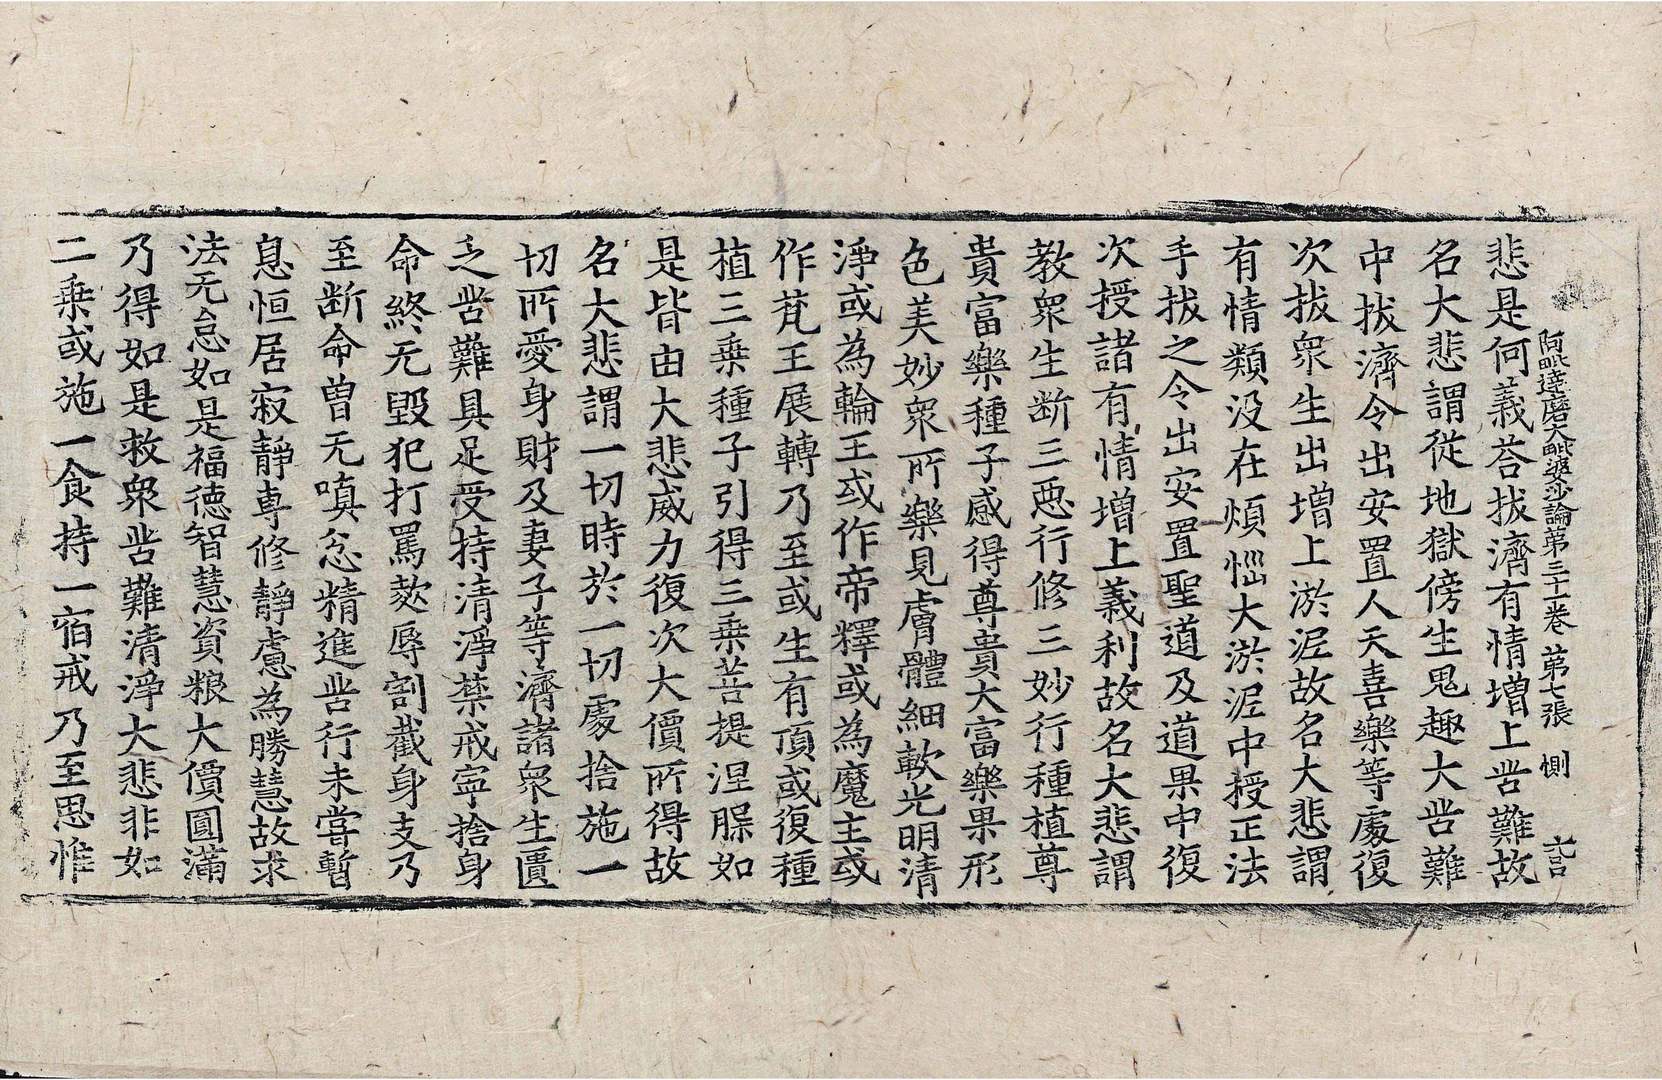 阿毗達磨大毗婆沙論第三十一卷 第七張 惻
悲是何義荅拔濟有情增上苦難故
名大悲謂從地獄傍生鬼趣大苦難
中拔濟令出安置人天喜樂等處復
次拔衆生出增上淤泥故名大悲謂
有情類没在煩惱大淤泥中授正法
手拔之令出安置聖道及道果中復
次授諸有情增上義利故名大悲謂
教衆生断三惡行修三妙行種植尊
貴富樂種子感得尊貴大富樂果形
色美妙衆所樂見膚體細軟光明清
淨或為輪王或作帝釋或為魔主或
作梵王展轉乃至或生有頂或復種
植三乗種子引得三乗菩提涅槃如
是皆由大悲威力復次大價所得故
名大悲謂一切時於一切處捨施一
切所愛身財及妻子等濟諸衆生匱
乏苦難具足受持清淨禁戒寧捨身
命終无毀犯打罵欺辱割截身支乃
至断命曽无嗔忿精進苦行未嘗暫
息恒居寂靜專修靜慮為勝慧故求
法无怠如是福德智慧資粮大價圓滿
乃得如是救衆苦難清淨大悲非如
二乗或施一食持一宿戒乃至思惟